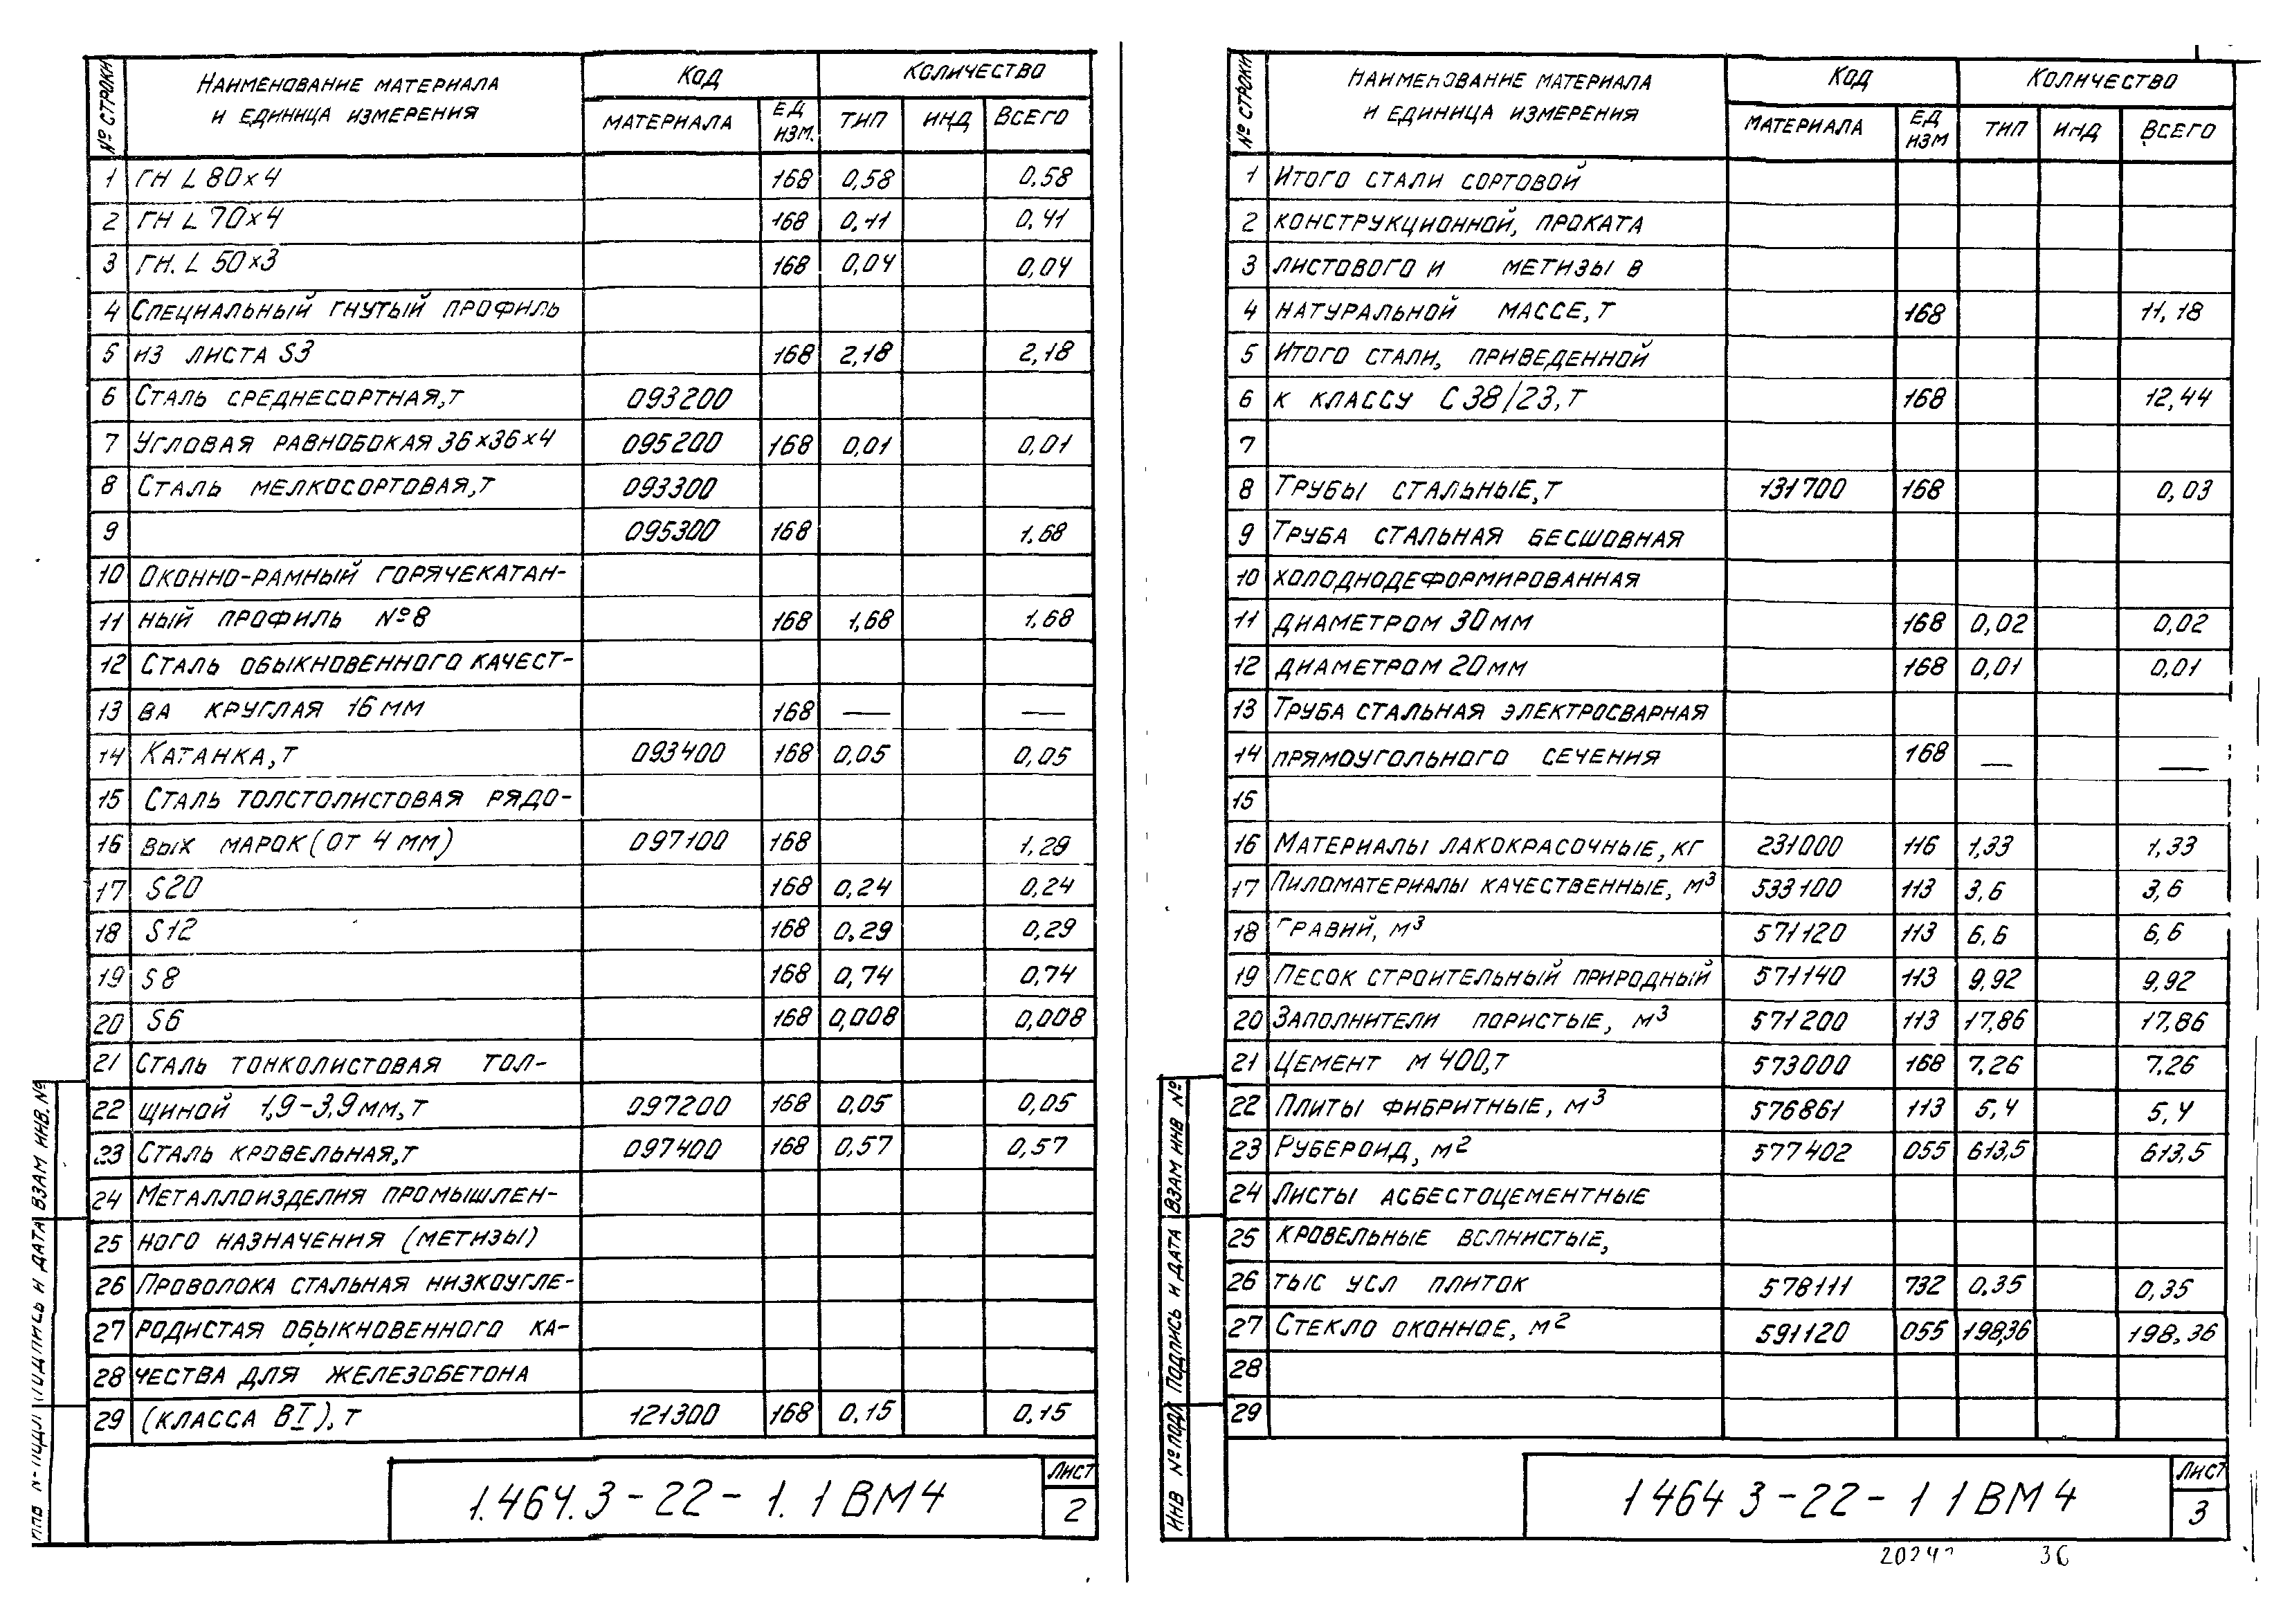 № СТРОКИ | НАИМЕНОВАНИЕ МАТЕРИАЛА И ЕДИНИЦА ИЗМЕРЕНИЯ | КОД | КОЛИЧЕСТВО
МАТЕРИАЛА | ЕД ИЗМ. | ТИП | ИНД | ВСЕГО
1 ГН L 80×4 168 0,58 0,58
2 ГН L 70×4 168 0,41 0,41
3 ГН. L 50×3 168 0,04 0,04
4 СПЕЦИАЛЬНЫЙ ГНУТЫЙ ПРОФИЛЬ
5 ИЗ ЛИСТА S3 168 2,18 2,18
6 СТАЛЬ СРЕДНЕСОРТНАЯ, Т 093200
7 УГЛОВАЯ РАВНОБОКАЯ 36×36×4 095200 168 0,01 0,01
8 СТАЛЬ МЕЛКОСОРТОВАЯ, Т 093300
9 095300 168 1,68
10 ОКОННО-РАМНЫЙ ГОРЯЧЕКАТАН-
11 НЫЙ ПРОФИЛЬ №8 168 1,68 1,68
12 СТАЛЬ ОБЫКНОВЕННОГО КАЧЕСТ-
13 ВА КРУГЛАЯ 16 ММ 168 — —
14 КАТАНКА, Т 093400 168 0,05 0,05
15 СТАЛЬ ТОЛСТОЛИСТОВАЯ РЯДО-
16 ВЫХ МАРОК (ОТ 4 ММ) 097100 168 1,29
17 S20 168 0,24 0,24
18 S12 168 0,29 0,29
19 S8 168 0,74 0,74
20 S6 168 0,008 0,008
21 СТАЛЬ ТОНКОЛИСТОВАЯ ТОЛ-
22 ЩИНОЙ 1,9-3,9 ММ, Т 097200 168 0,05 0,05
23 СТАЛЬ КРОВЕЛЬНАЯ, Т 097400 168 0,57 0,57
24 МЕТАЛЛОИЗДЕЛИЯ ПРОМЫШЛЕН-
25 НОГО НАЗНАЧЕНИЯ (МЕТИЗЫ)
26 ПРОВОЛОКА СТАЛЬНАЯ НИЗКОУГЛЕ-
27 РОДИСТАЯ ОБЫКНОВЕННОГО КА-
28 ЧЕСТВА ДЛЯ ЖЕЛЕЗОБЕТОНА
29 (КЛАССА ВI), Т 121300 168 0,15 0,15
ПОДПИСЬ И ДАТА ВЗАМ ИНВ. №
1.464.3-22-1.1 ВМ4
ЛИСТ
2
№ СТРОКИ | НАИМЕНОВАНИЕ МАТЕРИАЛА И ЕДИНИЦА ИЗМЕРЕНИЯ | КОД | КОЛИЧЕСТВО
МАТЕРИАЛА | ЕД ИЗМ | ТИП | ИНД | ВСЕГО
1 ИТОГО СТАЛИ СОРТОВОЙ
2 КОНСТРУКЦИОННОЙ, ПРОКАТА
3 ЛИСТОВОГО И МЕТИЗЫ В
4 НАТУРАЛЬНОЙ МАССЕ, Т 168 11,18
5 ИТОГО СТАЛИ, ПРИВЕДЕННОЙ
6 К КЛАССУ С 38/23, Т 168 12,44
7
8 ТРУБЫ СТАЛЬНЫЕ, Т 131700 168 0,03
9 ТРУБА СТАЛЬНАЯ БЕСШОВНАЯ
10 ХОЛОДНОДЕФОРМИРОВАННАЯ
11 ДИАМЕТРОМ 30 ММ 168 0,02 0,02
12 ДИАМЕТРОМ 20 ММ 168 0,01 0,01
13 ТРУБА СТАЛЬНАЯ ЭЛЕКТРОСВАРНАЯ
14 ПРЯМОУГОЛЬНОГО СЕЧЕНИЯ 168 — —
15
16 МАТЕРИАЛЫ ЛАКОКРАСОЧНЫЕ, КГ 231000 116 1,33 1,33
17 ПИЛОМАТЕРИАЛЫ КАЧЕСТВЕННЫЕ, М³ 533100 113 3,6 3,6
18 ГРАВИЙ, М³ 571120 113 6,6 6,6
19 ПЕСОК СТРОИТЕЛЬНЫЙ ПРИРОДНЫЙ 571140 113 9,92 9,92
20 ЗАПОЛНИТЕЛИ ПОРИСТЫЕ, М³ 571200 113 17,86 17,86
21 ЦЕМЕНТ М 400, Т 573000 168 7,26 7,26
22 ПЛИТЫ ФИБРИТНЫЕ, М³ 576861 113 5,4 5,4
23 РУБЕРОИД, М² 577402 055 613,5 613,5
24 ЛИСТЫ АСБЕСТОЦЕМЕНТНЫЕ
25 КРОВЕЛЬНЫЕ ВОЛНИСТЫЕ,
26 ТЫС УСЛ ПЛИТОК 578111 732 0,35 0,35
27 СТЕКЛО ОКОННОЕ, М² 591120 055 198,36 198,36
28
29
ИНВ № ПОДЛ ПОДПИСЬ И ДАТА ВЗАМ ИНВ №
1 464 3-22-1 1 ВМ4
ЛИСТ
3
36